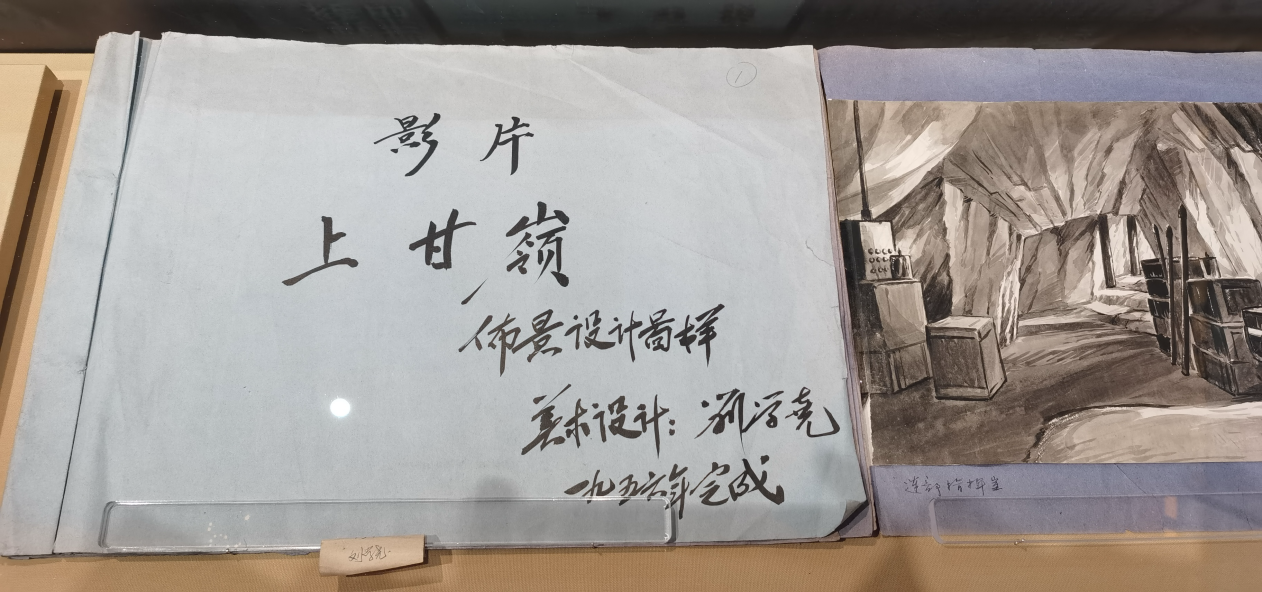 ①
影片
上甘嶺
佈景设计啚样
美术设计：刘学尧
一九五六年完成
刘学尧
连部指挥